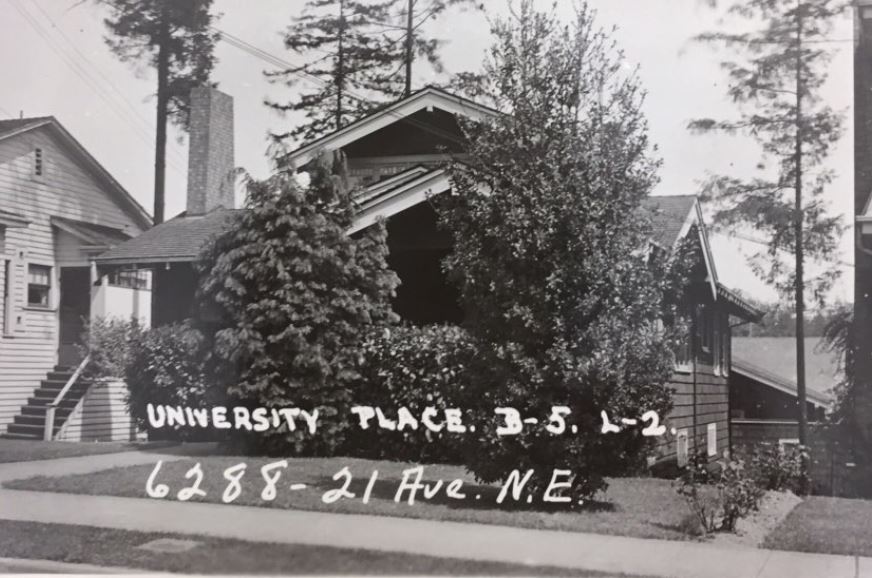 UNIVERSITY PLACE. B-5. L-2.
6288-21 Ave. N.E.